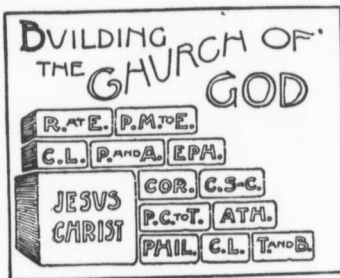 BVILDING
THE CHURCH OF
GOD
R. AT E. P. M. TO E.
C. L. P. AND A. EPH.
JESUS
CHRIST
COR. C. S-C.
P. C. TO T. ATH.
PHIL. C. L. T. AND B.